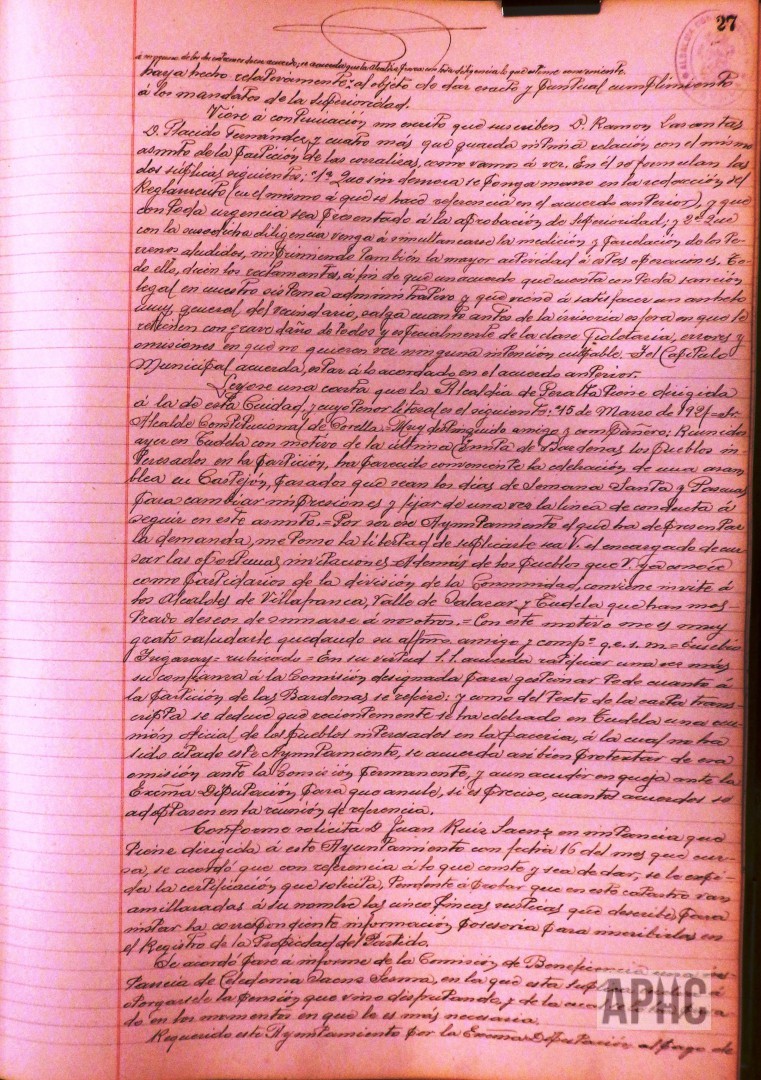 27
á ninguno de los dos extremos de ese acuerdo; se acuerda que la Alcaldía provea con toda diligencia lo que estime conveniente.
haya hecho relativamente al objeto de dar exacto y puntual cumplimiento
á los mandatos de la superioridad.
Viene á continuación un escrito que suscriben D. Ramon Sarantas
D. Placido Fernández y cuatro más que guarda íntima relación con el mismo
asunto de la partición de las corralizas, como vamos á ver. En él se formulan las
dos súplicas siguientes: "1ª Que sin demora se ponga mano en la redacción del
Reglamento (es el mismo á que se hace referencia en el acuerdo anterior), y que
con toda urgencia sea presentado á la aprobación de superioridad; y 2ª Que
con la susodicha diligencia venga á simultanearse la medición y parcelación de los te-
rrenos aludidos, imprimiendo también la mayor actividad á estas operaciones. To-
do ello, dicen los reclamantes, á fin de que un acuerdo que cuenta con toda sanción
legal en nuestro sistema administrativo y que viene á satisfacer un anhelo
muy general del vecindario, salga cuanto antes de la irrisoria esfera en que le
retienen con grave daño de todos y especialmente de la clase proletaria, errores y
omisiones en que no quieren ver ninguna intención culpable. Y el Capítulo
Municipal acuerda, estar á lo acordado en el acuerdo anterior.
Leyóse una carta que la Alcaldía de Peralta tiene dirigida
á la de esta Ciudad, y cuyo tenor literal es el siguiente: "15 de Marzo de 1921 = Sr.
Alcalde Constitucional de Corella = Muy distinguido amigo y compañero: Reunidos
ayer en Tudela con motivo de la última Junta de Bardenas los pueblos in-
teresados en la partición, ha parecido conveniente la celebración de una asam-
blea en Castejón, pasados que sean los días de Semana Santa y Pascuas
para cambiar impresiones y fijar de una vez la línea de conducta á
seguir en este asunto. = Por ser ese Ayuntamiento el que ha de presentar
la demanda, me tomo la libertad de suplicarle sea V. el encargado de cur-
sar las oportunas invitaciones. Además de los pueblos que V. ya conoce
como partidarios de la división de la Comunidad, conviene invite á
los Alcaldes de Villafranca, Valle de Salazar y Tudela que han mos-
trado deseos de sumarse á nosotros. = Con este motivo me es muy
grato saludarle quedando su affmo. amigo y compº. q.e.s.m. = Eusebio
Irigaray = rubricado = En su virtud S.S. acuerda ratificar una vez más
su confianza á la Comisión designada para gestionar todo cuanto á
la partición de las Bardenas se refiere: y como del texto de la carta trans-
cripta se deduce que recientemente se ha celebrado en Tudela una reu-
nión oficial de los pueblos interesados en la facería, á la cual no ha
sido citado este Ayuntamiento, se acuerda asi bien protestar de esa
omisión ante la Comisión permanente, y aun acudir en queja ante la
Excma Diputación, para que anule, si es preciso, cuantos acuerdos se
adoptasen en la reunión de referencia.
Conforme solicita D. Juan Ruiz Saenz en instancia que
tiene dirigida á este Ayuntamiento con fecha 16 del mes que cur-
sa, se acordó que con referencia á lo que conste y sea de dar, se le expi-
da la certificación que solicita, tendente á probar que en este catastro van
amillaradas á su nombre las cinco fincas rusticas que describe, para
instar la correspondiente información posesoria para inscribirlas en
el Registro de la Propiedad del Partido.
Se acordó pase á informe de la Comisión de Beneficencia una ins-
tancia de Celedonia Saenz Sesma, en la que esta
otorgarsele la pensión que vino disfrutando, y de la
do en los momentos en que le es más necesaria.
Requerido este Ayuntamiento por la Excma Diputación al pago de
APHC